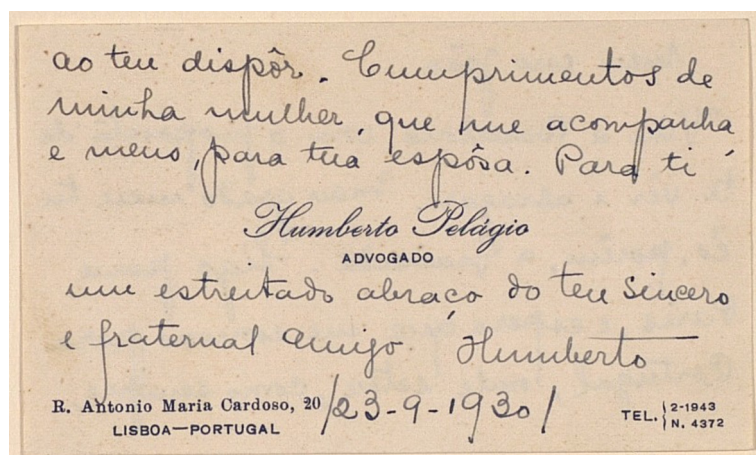 ao teu dispôr. Cumprimentos de
minha mulher, que me acompanha,
e meus, para tua espôsa. Para ti
Humberto Pelágio
ADVOGADO
um estreitado abraço do teu sincero
e fraternal amigo Humberto
R. Antonio Maria Cardoso, 20 /23-9-1930/ TEL. { 2-1943
LISBOA—PORTUGAL N. 4372